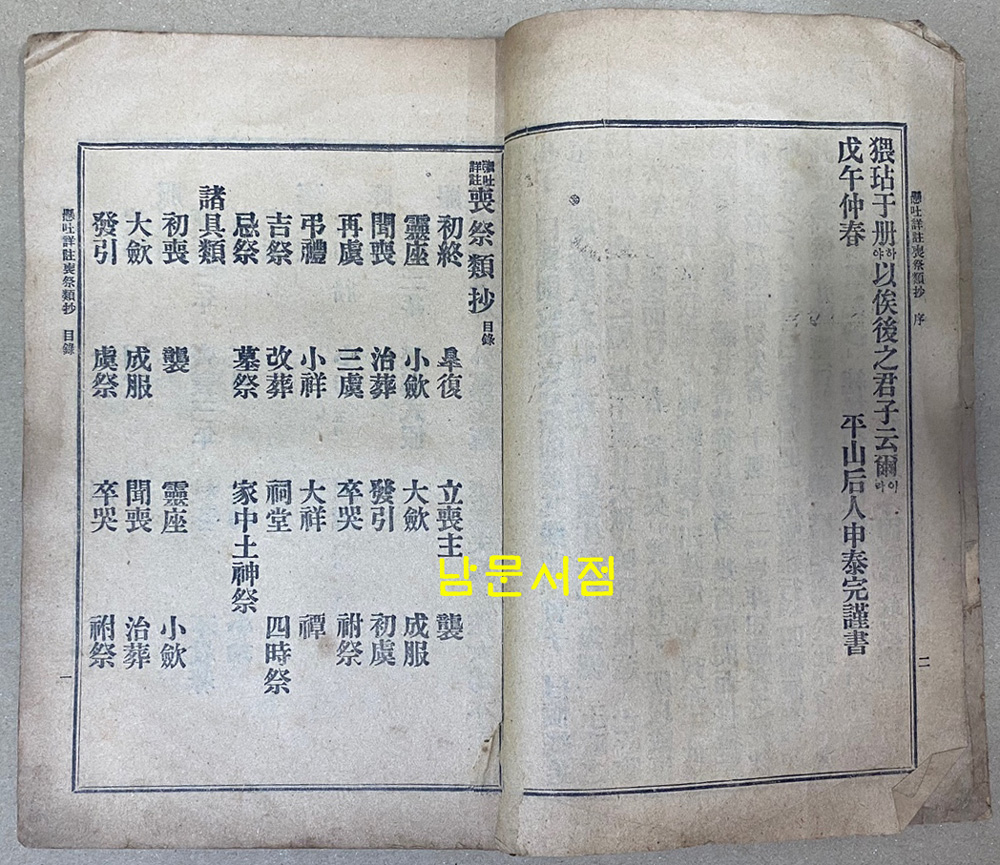 懸吐詳註喪祭類抄 序
猥玷于册하야以俟後之君子云爾이라
戊午仲春 平山后人申泰完謹書
二
懸吐詳註喪祭類抄 目錄
初終 皐復 立喪主 襲
靈座 小歛 大歛 成服
聞喪 治葬 發引 初虞
再虞 三虞 卒哭 祔祭
弔禮 小祥 大祥 禫
吉祭 改葬 祠堂 四時祭
忌祭 墓祭 家中土神祭
諸具類
初喪 襲 靈座 小歛
大歛 成服 聞喪 治葬
發引 虞祭 卒哭 祔祭
懸吐詳註喪祭類抄 目錄
一
남문서점